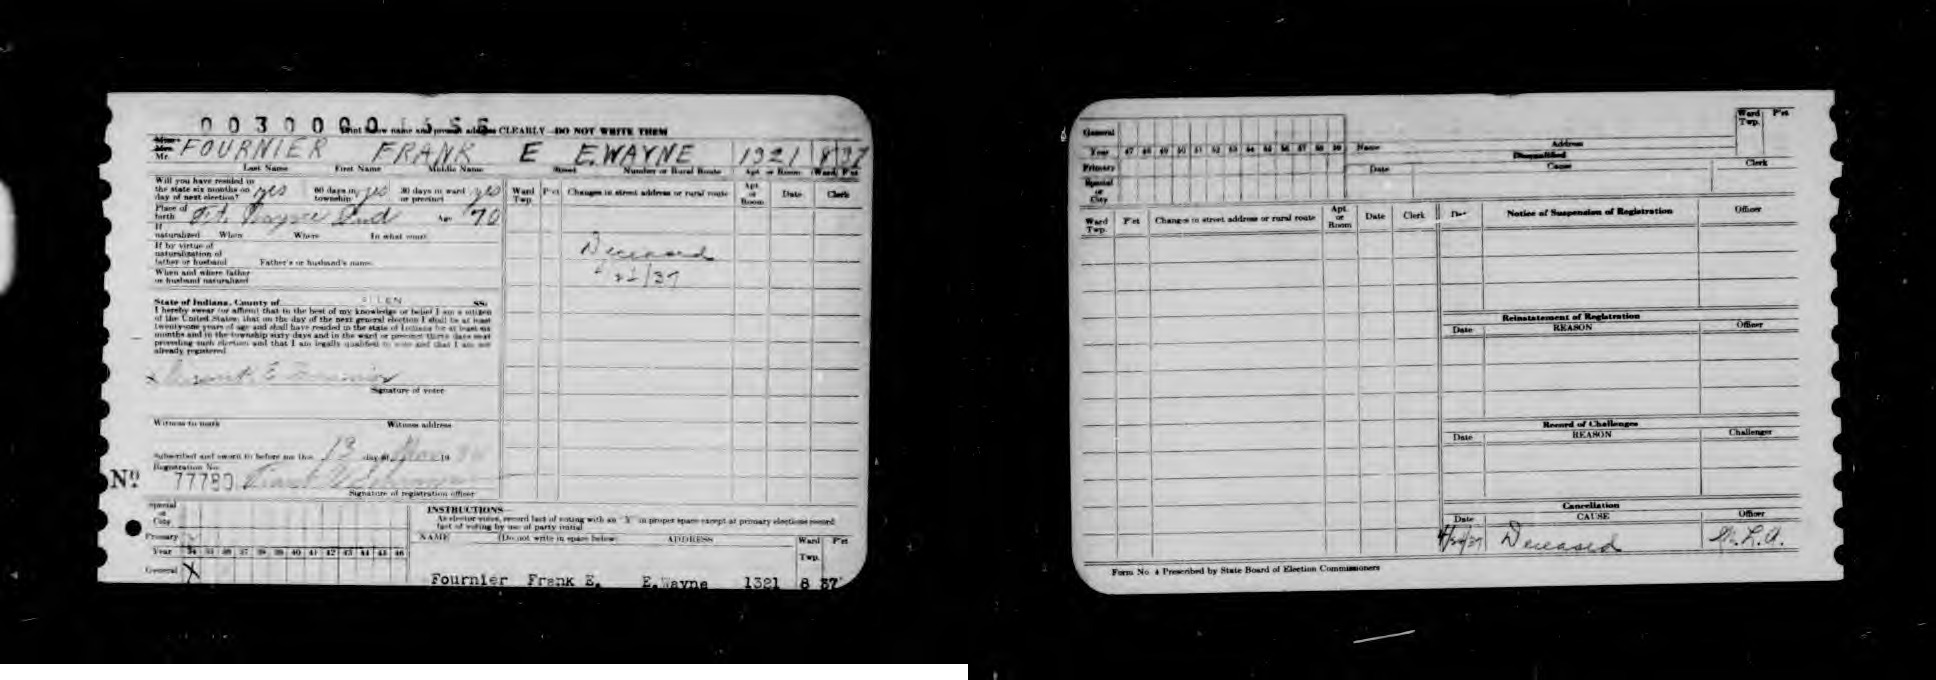 0030000
Print below name and present address CLEARLY—DO NOT WRITE THEM
Miss
Mrs.
Mr. FOURNIER FRANK E E. WAYNE 1321 8 37
Last Name First Name Middle Name Street Number or Rural Route Apt. or Room Ward P'ct
Will you have resided in
the state six months on yes 60 days in yes 30 days in ward yes
day of next election? township or precinct
Place of
birth Ft. Wayne Ind Age 70
If
naturalized When Where In what court
If by virtue of
naturalization of
father or husband Father's or husband's name
When and where father
or husband naturalized
State of Indiana, County of ALLEN ss:
I hereby swear (or affirm) that to the best of my knowledge or belief I am a citizen
of the United States; that on the day of the next general election I shall be at least
twenty-one years of age and shall have resided in the state of Indiana for at least six
months and in the township sixty days and in the ward or precinct thirty days next
preceding such election and that I am legally qualified to vote and that I am not
already registered
x Frank E Fournier
Signature of voter
Witness to mark Witness address
Subscribed and sworn to before me this 13 day of 19
Registration No.
No 77780 Frank
Signature of registration officer
Ward Twp. P'ct Changes in street address or rural route Apt. or Room Date Clerk
Deceased
/37
Special
or
City
Primary
Year 34 35 36 37 38 39 40 41 42 43 44 45 46
General X
INSTRUCTIONS—
As elector votes, record fact of voting with an "X" in proper space except at primary elections record
fact of voting by use of party initial
NAME (Do not write in space below) ADDRESS Ward Twp. P'ct
Fournier Frank E. E.Wayne 1321 8 37
General
Year 47 48 49 50 51 52 53 54 55 56 57 58 59
Primary
Special
or
City
Name Address Ward Twp. P'ct
Disqualified
Date Cause Clerk
Ward Twp. P'ct Changes in street address or rural route Apt. or Room Date Clerk
Date Notice of Suspension of Registration Officer
Reinstatement of Registration
Date REASON Officer
Record of Challenges
Date REASON Challenger
Cancellation
Date CAUSE Officer
Deceased
Form No. 4 Prescribed by State Board of Election Commissioners